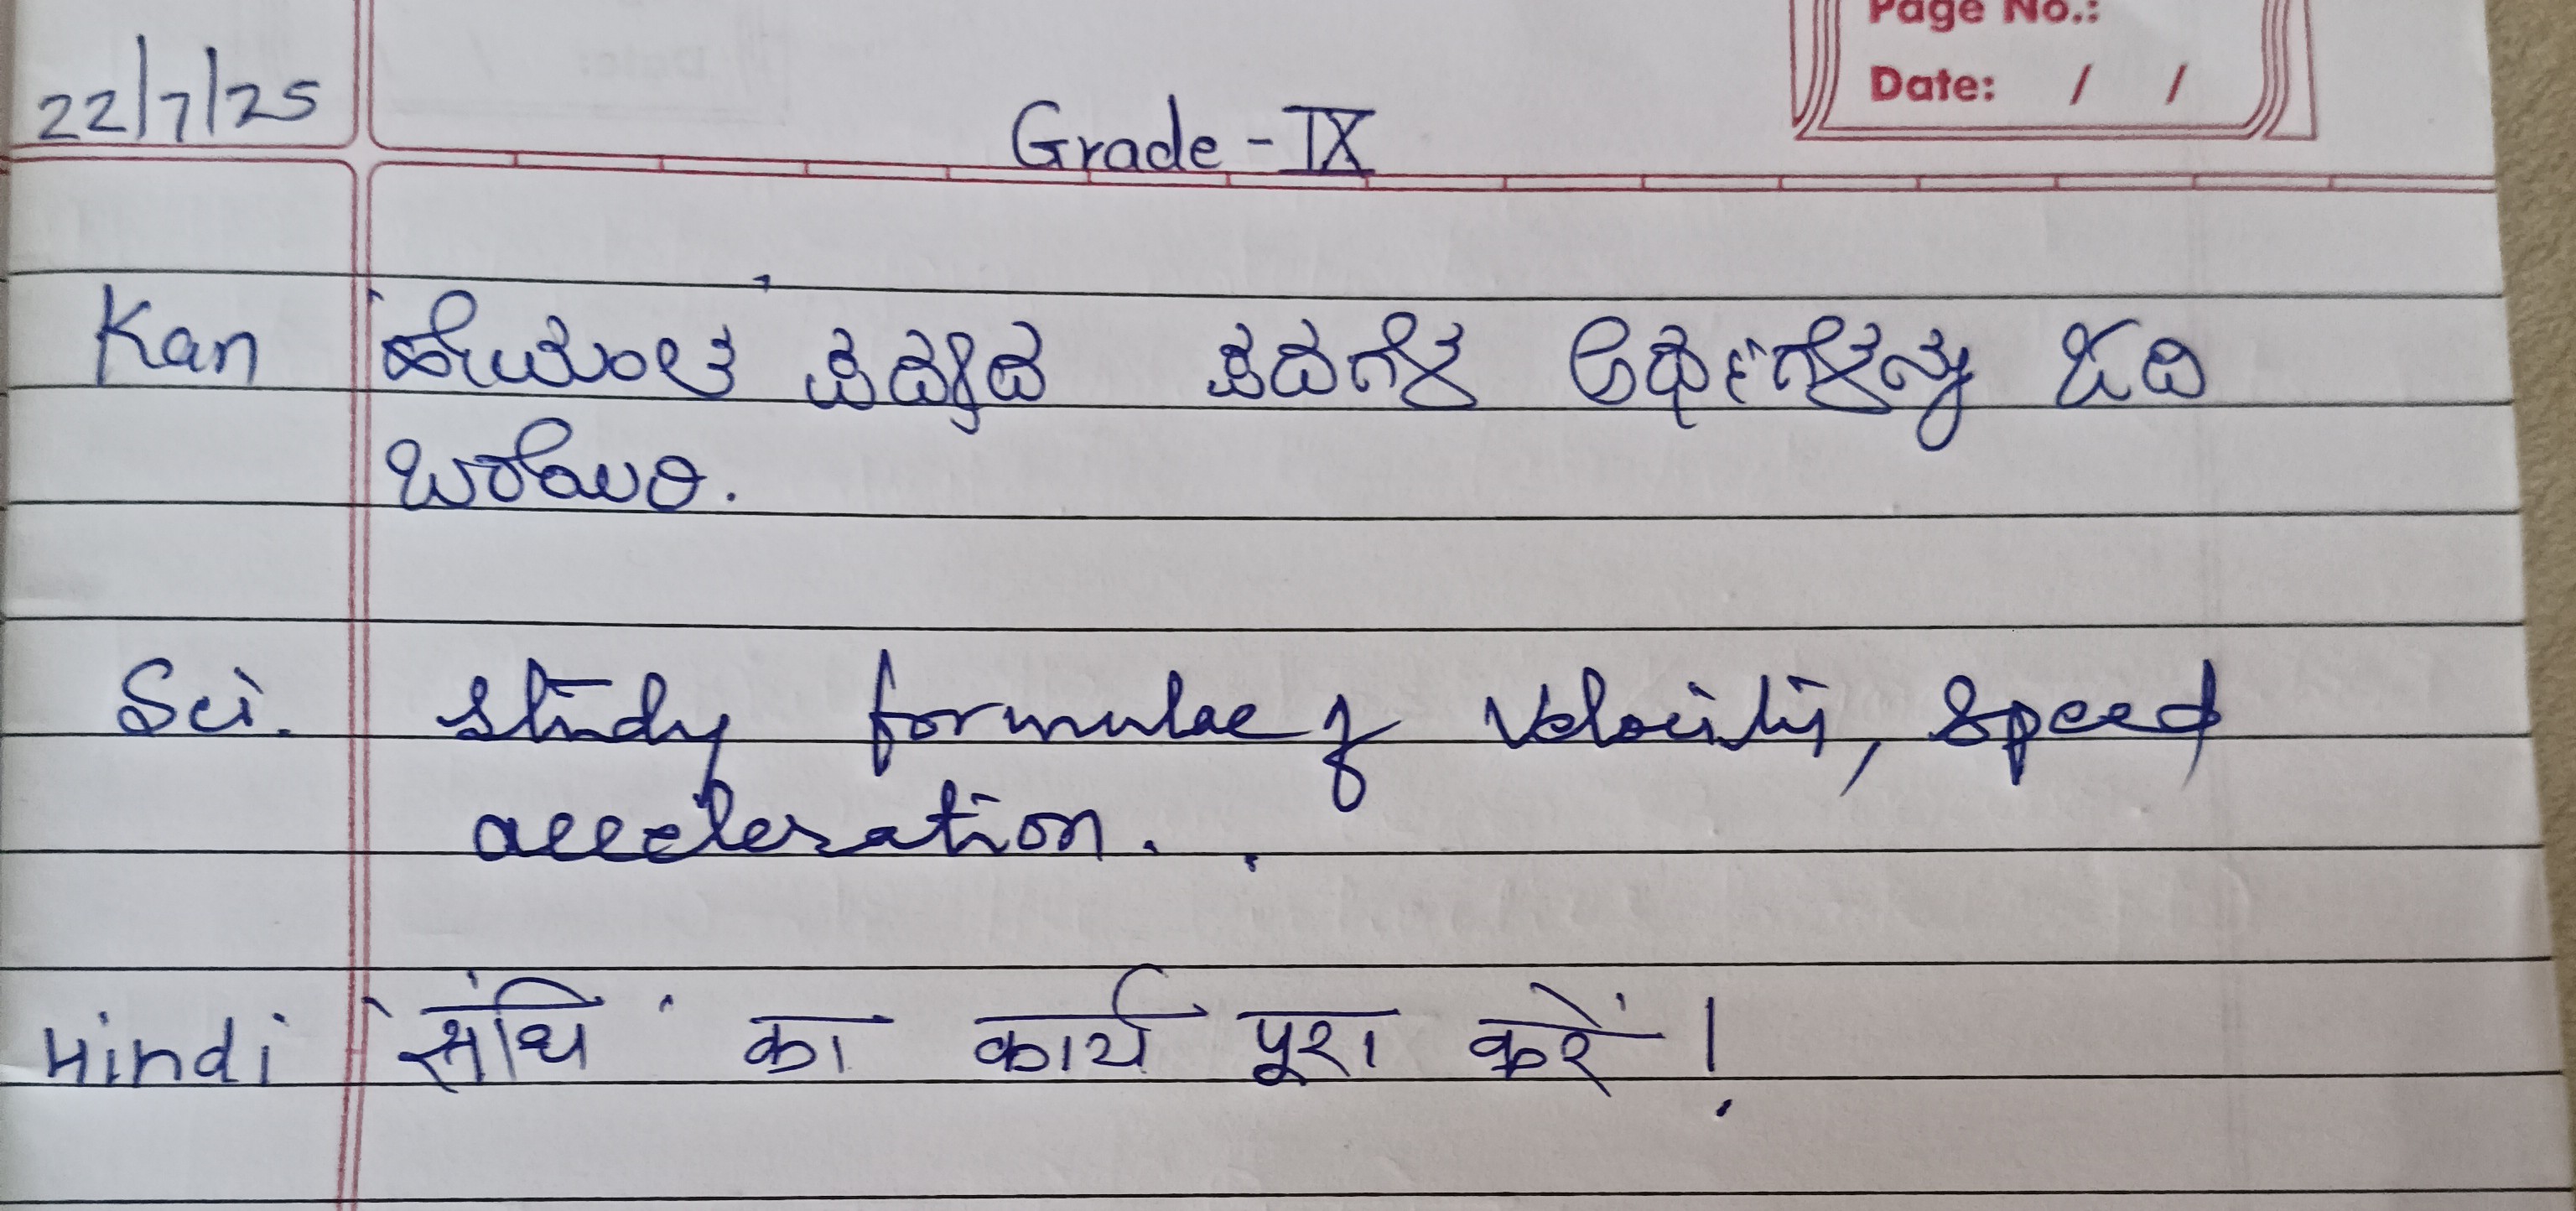 Page No.:
Date: / /
22/7/25
Grade - IX
Kan 'ಹೇಮಂತ' ಪದ್ಯದ ಪದಗಳ ಅರ್ಥಗಳನ್ನು ಓದಿ
ಬರೆಯಿರಿ.
Sci. Study formulae of Velocity, Speed
acceleration.
Hindi 'संधि' का कार्य पूरा करें।